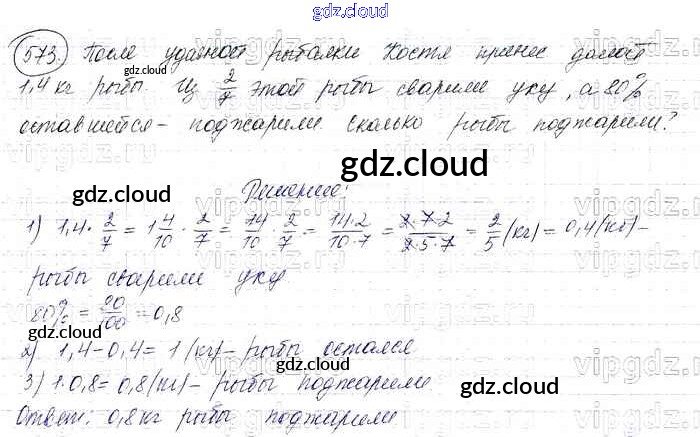 gdz.cloud
573. После удачной рыбалки Костя принес домой
gdz.cloud
1,4 кг рыбы Из 2/7 этой рыбы сварили уху, а 80%
оставшейся - поджарили. Сколько рыбы поджарили?
gdz.cloud
gdz.cloud
Решение:
1) 1,4 · 2/7 = 1 4/10 · 2/7 = 14/10 · 2/7 = 14·2/10·7 = 2·7·2/2·5·7 = 2/5 (кг) = 0,4 (кг) -
рыбы сварили уху
gdz.cloud
80% = 80/100 = 0,8
gdz.cloud
2) 1,4 - 0,4 = 1 (кг) - рыбы остался
gdz.cloud
3) 1·0,8 = 0,8 (кг) - рыбы поджарили
gdz.cloud
Ответ: 0,8 кг рыбы поджарили